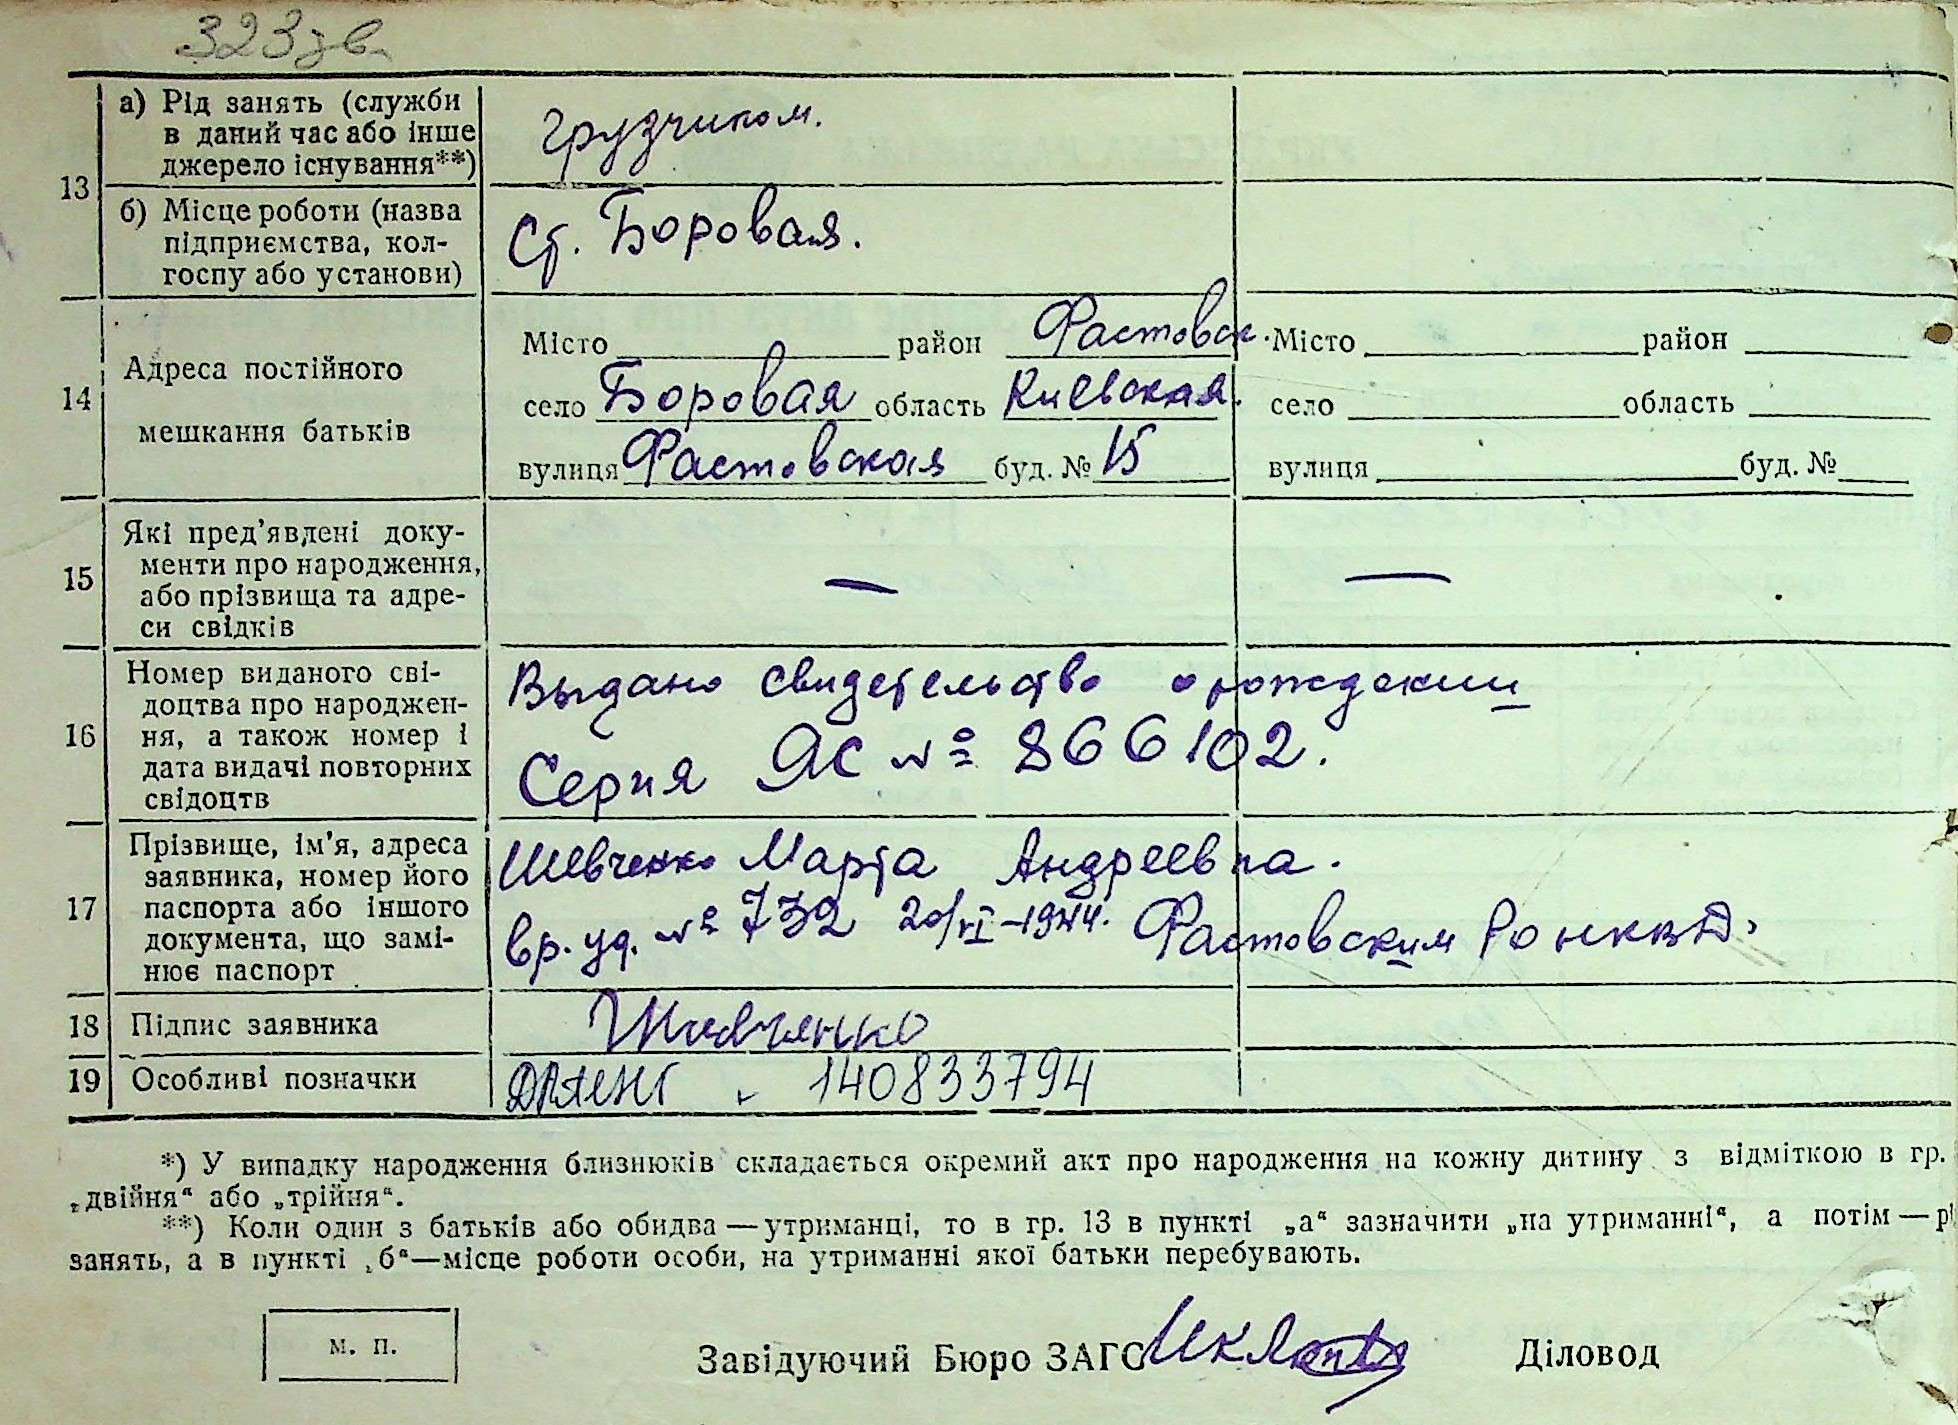 323 зв.
13
а) Рід занять (служби в даний час або інше джерело існування**)
грузчиком.
б) Місце роботи (назва підприємства, кол-госпу або установи)
Ст. Боровая.
14
Адреса постійного мешкання батьків
Місто район Фастовск.
село Боровая область Киевская.
вулиця Фастовская буд. № 15
Місто район
село область
вулиця буд. №
15
Які пред'явлені доку-
менти про народження,
або прізвища та адре-
си свідків
—
—
16
Номер виданого сві-
доцтва про народжен-
ня, а також номер і
дата видачі повторних
свідоцтв
Выдано свидетельство о рождении
Серия ЯС № 866102.
17
Прізвище, ім'я, адреса
заявника, номер його
паспорта або іншого
документа, що замі-
нює паспорт
Шевченко Марта Андреевна.
вр. уд. № 732 20/VI-1944. Фастовским Ронквд.
18
Підпис заявника
Шевченко
19
Особливі позначки
140833794
*) У випадку народження близнюків складається окремий акт про народження на кожну дитину з відміткою в гр.
„двійня“ або „трійня“.
**) Коли один з батьків або обидва — утриманці, то в гр. 13 в пункті „а“ зазначити „на утриманні“, а потім — рі
занять, а в пункті „б“ — місце роботи особи, на утриманні якої батьки перебувають.
м. п.
Завідуючий Бюро ЗАГС
Діловод